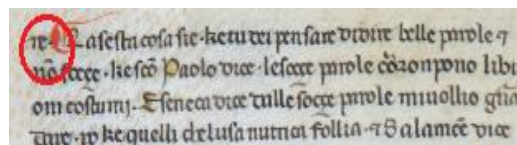 re. La sesta cosa sie. ke tu dei pensare di dire belle parole ⁊
nō soççe. ke scō Paolo dice. le soççe parole cōronpono li bu
oni costumi. E seneca dice dalle soççe parole mi uollio gua
dare. ke quelli de lusa nutrica follia. ⁊ Salamōe dice